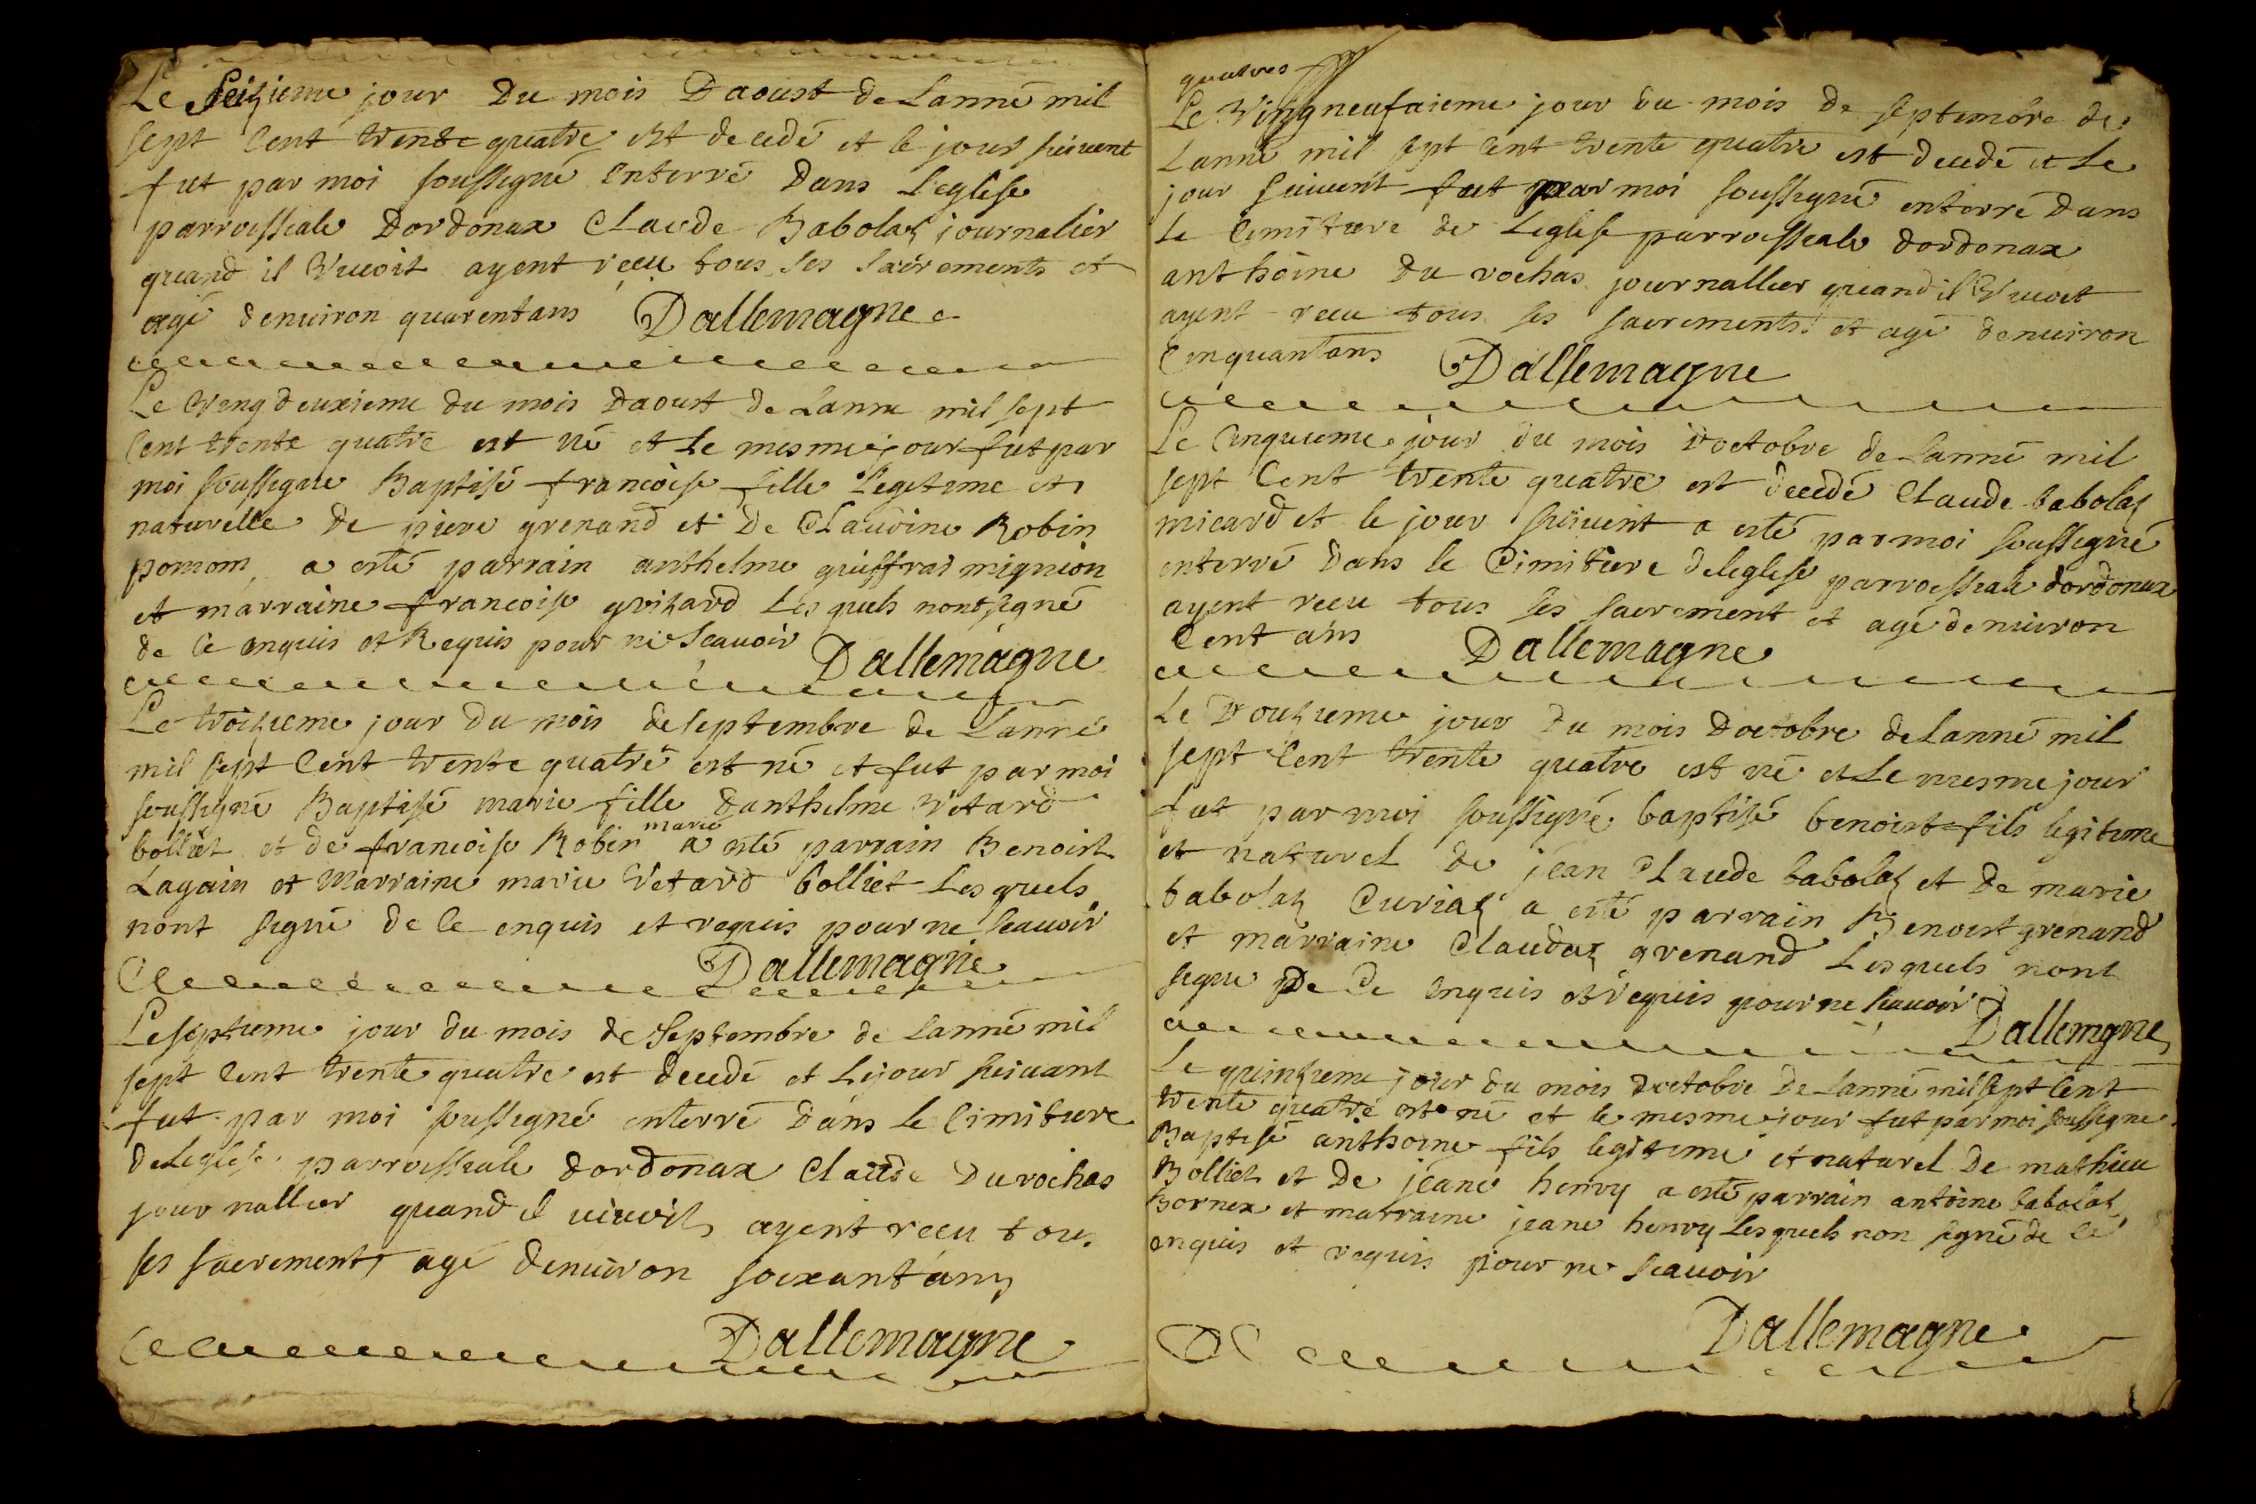 Le Seizieme jour Du mois Daoust de Lanné mil
sept Cent trente quatre est decedé et le jour suiuent
fut par moi soussigné Enterré Dans Leglise
parroissiale Dordonax Claude Babolaz journalier
quand il Viuoit ayent reçu tous ses sacrements et
agé denuiron quarentans Dallemagne
Le Vengdeuxieme du mois Daoust de Lanne mil sept
Cent trente quatre est né et Le mesme jour fut par
moi soussigne Baptisé francoise fille Legetime et
naturelle de piere grenand et De Claudine Robin
pomom a esté parrain anthelme guiffrai mignion
et marraine francoise grizard Les quels nont signé
de Ce enquis et Requis pour ne Scauoir Dallemagne
Le troizieme jour Du mois de septembre de Lanné
mil sept Cent trente quatre est né et fut par moi
soussigné Baptisé marie fille danthelme Vetard
bolliet et de francoise Robin marie a esté parrain Benoist
Lagain et Marraine marie Vetard bolliet Les quels
nont signé de Ce enquis et requis pour ne scauoir
Dallemagne
Le septieme jour du mois de Septembre de Lanné mil
sept Cent trente quatre est decedé et Le jour suiuant
fut par moi soussigné enterré Dans Le Cimitiere
de Leglise parroissiale dordonax Claude Du rochas
journallier quand il uiuoit ayent recu tou
ses sacrements agé denuiron soixantans
Dallemagne
quatres
Le Vingneufaieme jour du mois De septembre de
Lanné mil sept Cent trente quatre est decedé et Le
jour suiuent fut par moi soussigné enterré Dans
Le Cimitiere de Leglise parroissiale dordonax
anthoine Du rochas journallier quand il Viuoit
ayent recu tous ses sacrements et agé denuiron
Cinquantans Dallemagne
Le Cinquieme jour du mois Doctobre de Lanné mil
sept Cent trente quatre est decedé Claude babolaz
micard et le jour suiuent a esté par moi soussigné
enterré Dans le Cimitiere deleglise parroissiale dordonax
ayent recu tous ses sacrement et agé denuiron
Cent ans Dallemagne
Le Douzieme jour Du mois Doctobre de Lanné mil
sept Cent trente quatre est né et Le mesme jour
fut par moi soussigné baptisé benoist fils legitime
et naturel de jean Claude babolaz et de marie
babolaz Curiaz a esté parrain Benoist grenand
et marraine Claudaz grenand Lesquels nont
signe De Ce enquis et requis pour ne scauoir
Dallemgne
Le quinzieme jour du mois doctobre De Lanné mil sept Cent
trente quatre est né et le mesme jour fut par moi soussigne
Baptisé anthoine fils legitime et naturel De mathieu
Bolliet et De jeane henry a esté parrain antoine babolaz
Bornex et marraine jeane henry Lesquels non signé de Ce
enquis et requis pour ne scauoir
Dallemagne